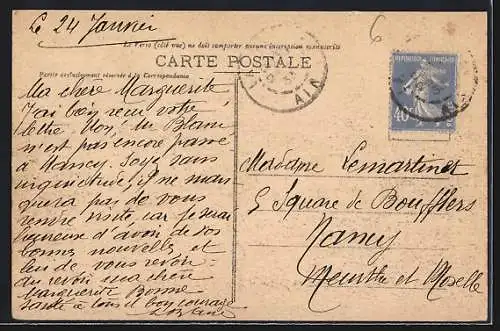 Le 24 Janvier
Le Verso (côté vue) ne doit comporter aucune inscription manuscrite
CARTE POSTALE
Partie exclusivement réservée à la Correspondance
6
AIN
RÉPUBLIQUE FRANÇAISE
40
Ma chère Marguerite
J'ai bien reçu votre
lettre. Non, Mr Blanc
n'est pas encore passé
à Nancy. Soyez sans
inquiétude, il ne man
quera pas de vous
rendre visite car je serai
heureuse d'avoir de vos
bonnes nouvelles et
de vous revoir.
au revoir ma chère
Marguerite Bonne
santé à tous et bon courage
Madame Lemartinet
5 Square de Boufflers
Nancy
Meurthe et Moselle